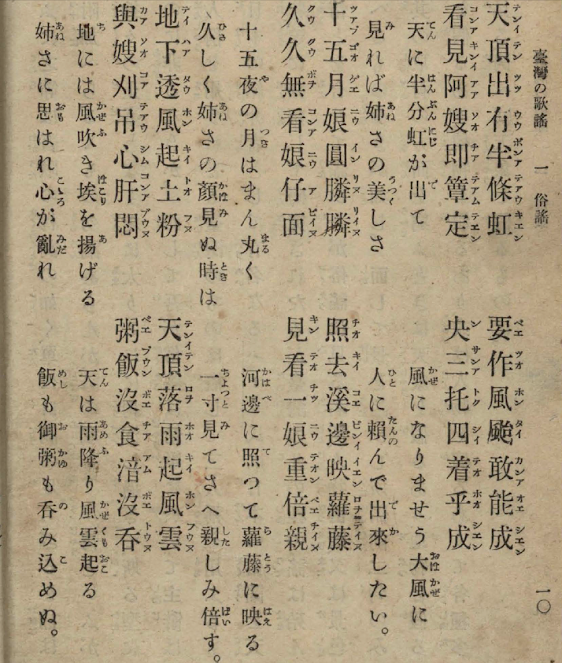 臺灣の歌謠 一 俗謠 一〇
天頂出有半條虹 要作風颱敢能成
看見阿嫂即簟定 央三托四着乎成
天に半分虹が出て 風になりませう大風に
見れば姉さの美しさ 人に賴んで出來したい。
十五月娘圓膦膦 照去溪邊映蘿藤
久久無看娘仔面 見看一娘重倍親
十五夜の月はまん丸く 河邊に照つて蘿藤に映る
久しく姉さの顏見ぬ時は 一寸見てさへ親しみ倍す。
地下透風起土粉 天頂落雨起風雲
與嫂刈吊心肝悶 粥飯沒食湆沒呑
地には風吹き埃を揚げる 天は雨降り風雲起る
姉さに思はれ心が亂れ 飯も御粥も呑み込めぬ。